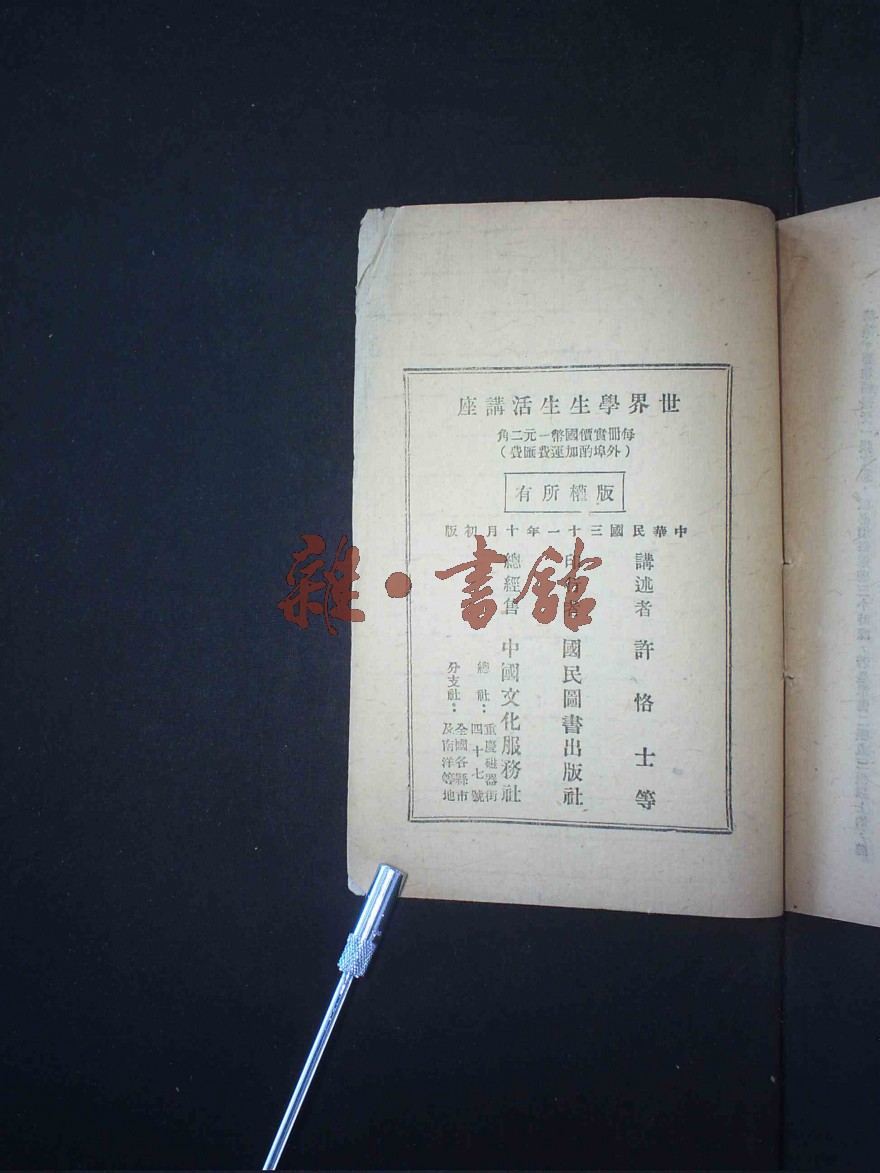 世界學生生活講座
每冊實價國幣一元二角
（外埠酌加運費匯費）
版權所有
中華民國三十一年十月初版
講述者 許恪士等
印行者 國民圖書出版社
總經售 中國文化服務社
總社：重慶磁器街四十七號
分支社：全國各縣市及南洋等地
雜·書館